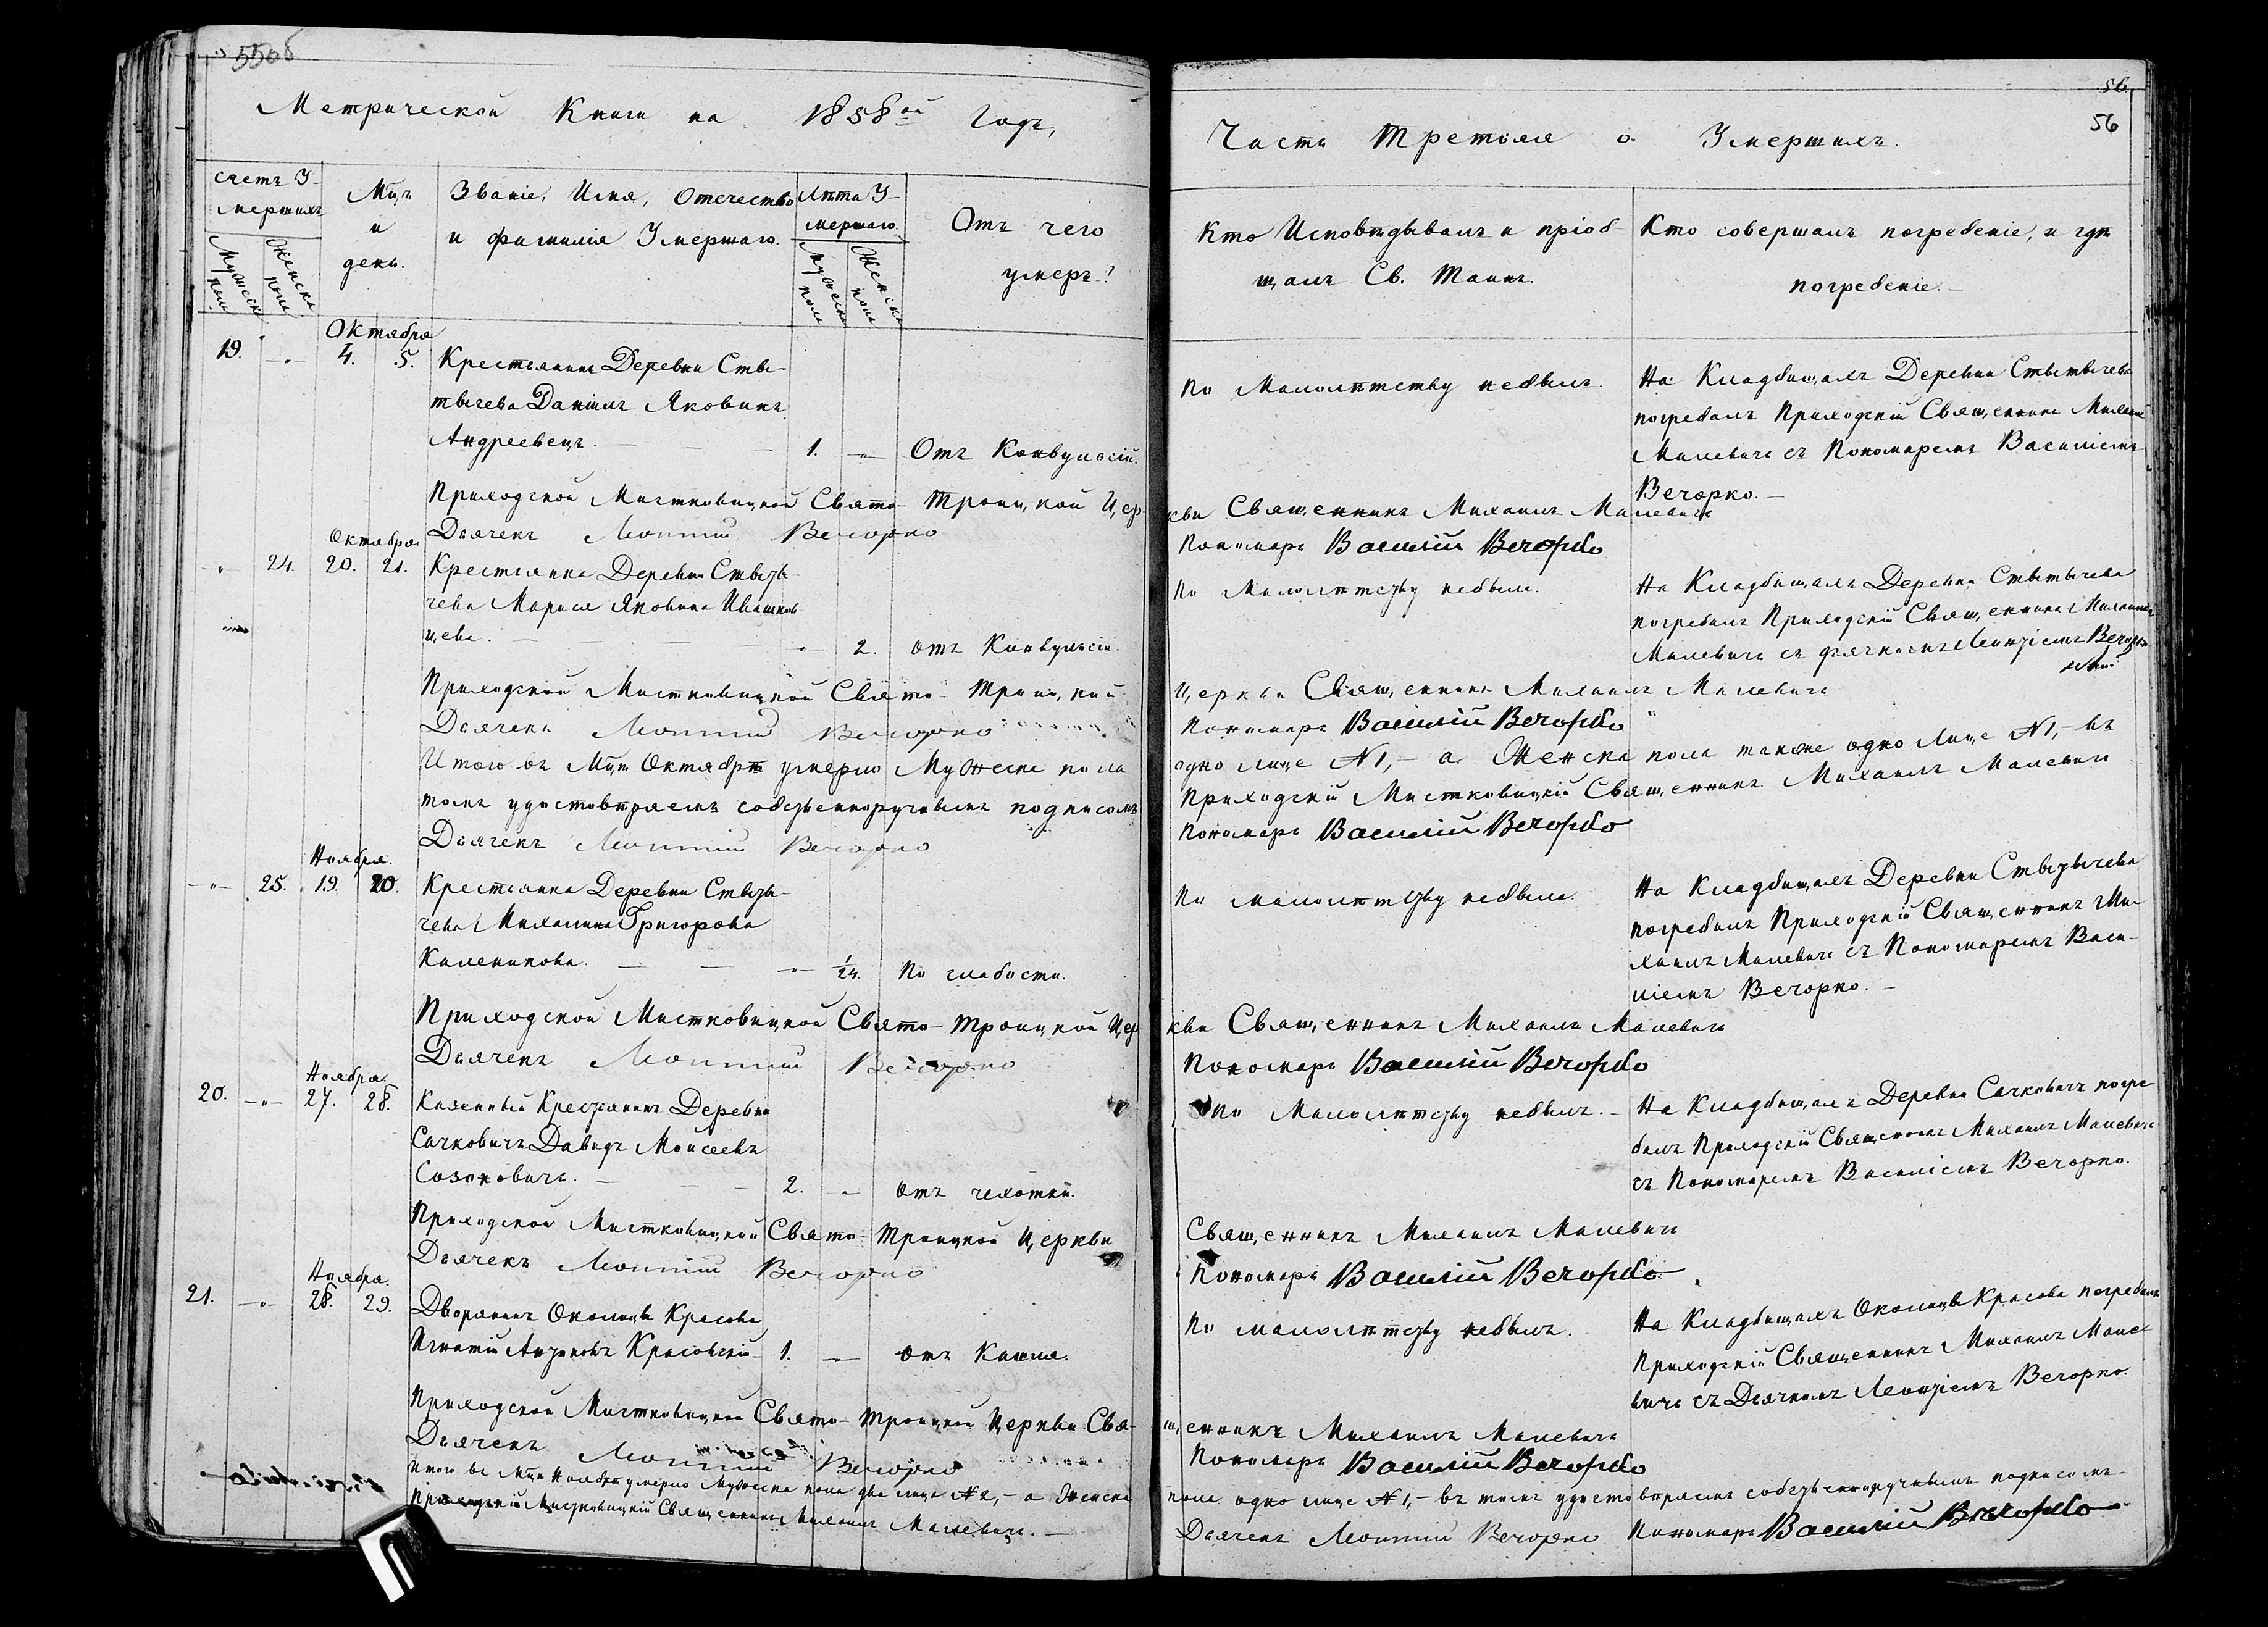 55об
Метрической Книги на 1858ой Годъ,
счетъ У-
мершихъ
Мужеск
пола
Женска
пола
Мцъ
и
день.
Званіе, Имя, Отечество
и фамилія Умершаго.
Лѣта У-
мершаго.
Мужеска
пола
Женска
пола
Отъ чего
умеръ?
Октября
19. - " - 4. 5. Крестьянинъ Деревни Ствы-
тычева Даніилъ Яковинъ
Андреевецъ. 1. - " - Отъ Конвульсій.
Приходской Мистковицкой Свято-Троицкой Цер-
Дьячекъ Леонтій Вечорко
Октября
- " - 24. 20. 21. Крестьянка Деревни Ствыты-
чева Марья Яковина
цева. - " - 2. отъ Конвульсіи.
Приходской Мистковицкой Свято-Троицкой
Дьячекъ Леонтій Вечорко
Итого въ Мцѣ Октябрѣ умерло Мужеска пола
томъ удостовѣряемъ собственноручнымъ подписомъ
Дьячекъ Леонтій Вечорко
Ноября.
- " - 25. 19. 20. Крестьянка Деревни Ствыты-
чева Михалина Григорова
Каленикова. - " - 1/24. По слабости.
Приходской Мистковицкой Свято-Троицкой Цер
Дьячекъ Леонтій Вечорко
Ноября.
20. - " - 27. 28. Казенный Крестьянинъ Деревни
Сачковичъ Давидъ Моисеевъ
Сазоновичъ. 2. - " - отъ чехотки.
Приходской Мистковицкой Свято-Троицкой Церкви
Дьячекъ Леонтій Вечорко
Ноября.
21. - " - 28. 29. Дворянинъ Околицы Красова
Игнатій Антоновъ Красовскій 1. - " - отъ Кашля.
Приходской Мистковицкой Свято-Троицкой Церкви Свя-
Дьячекъ Леонтій Вечорко
Итого въ Мцѣ Ноябрѣ умерло Мужеска пола два лица №2, - а Женска
Приходскій Мистковицкій Священникъ Михаилъ Малевичъ. -
56
56
Часть Третья о Умершихъ.
Кто Исповѣдывалъ и пріоб-
щалъ Св. Таинъ.
Кто совершалъ погребеніе, и гдѣ
погребеніе. -
По малолѣтству небылъ.
На Кладбищахъ Деревни Ствытычева
погребалъ Приходскій Священникъ Михаилъ
Малевичъ съ Пономаремъ Василіемъ
Вечорко. -
кви Священникъ Михаилъ Малевичъ
Пономарь Василій Вечорко
По малолѣтству небыла.
На Кладбищахъ Деревни Ствытычева
погребалъ Приходскій Священникъ Михаилъ
Малевичъ съ дьячкомъ Леонтіемъ Вечорко
Церкви Священникъ Михаилъ Малевичъ
Пономарь Василій Вечорко
одно лице №1, - а Женска пола также одно лице №1, - въ
Приходскій Мистковицкій Священникъ Михаилъ Малевичъ
Пономарь Василій Вечорко
По малолѣтству небыла.
На Кладбищахъ Деревни Ствытычева
погребалъ Приходскій Священникъ Ми-
хаилъ Малевичъ съ Пономаремъ Васи-
ліемъ Вечорко. -
кви Священникъ Михаилъ Малевичъ
Пономарь Василій Вечорко
По малолѣтству небылъ. -
На Кладбищахъ Деревни Сачковичъ погре-
балъ Приходскій Священникъ Михаилъ Малевичъ
съ Пономаремъ Василіемъ Вечорко.
Священникъ Михаилъ Малевичъ
Пономарь Василій Вечорко
По малолѣтству небылъ.
На Кладбищахъ Околицы Красова погребалъ
Приходскій Священникъ Михаилъ Мале-
вичъ съ Дьячкомъ Леонтіемъ Вечорко.
щенникъ Михаилъ Малевичъ
Пономарь Василій Вечорко
пола одно лице №1, - въ томъ удостовѣряемъ собственноручнымъ подписомъ -
Дьячекъ Леонтій Вечорко Пономарь Василій Вечорко